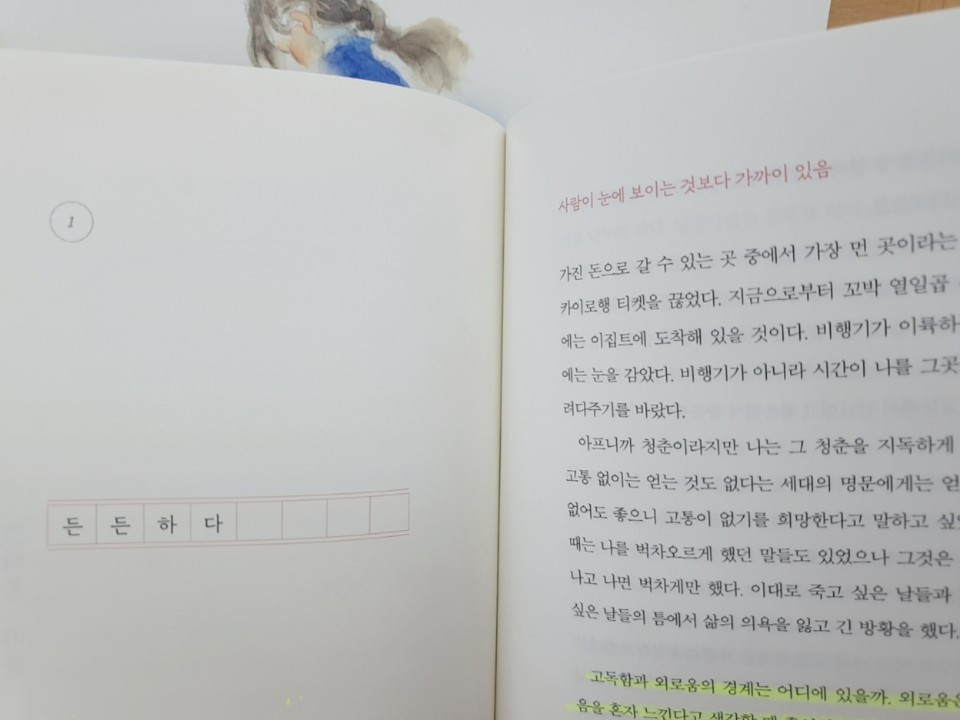 1
든든하다
사람이 눈에 보이는 것보다 가까이 있음
가진 돈으로 갈 수 있는 곳 중에서 가장 먼 곳이라는
카이로행 티켓을 끊었다. 지금으로부터 꼬박 열일곱
에는 이집트에 도착해 있을 것이다. 비행기가 이륙하
에는 눈을 감았다. 비행기가 아니라 시간이 나를 그곳
려다주기를 바랐다.
아프니까 청춘이라지만 나는 그 청춘을 지독하게
고통 없이는 얻는 것도 없다는 세대의 명문에게는 얻
없어도 좋으니 고통이 없기를 희망한다고 말하고 싶
때는 나를 벅차오르게 했던 말들도 있었으나 그것은
나고 나면 벅차게만 했다. 이대로 죽고 싶은 날들과
싶은 날들의 틈에서 삶의 의욕을 잃고 긴 방황을 했다.
고독함과 외로움의 경계는 어디에 있을까. 외로움은
음을 혼자 느낀다고 생각할 때